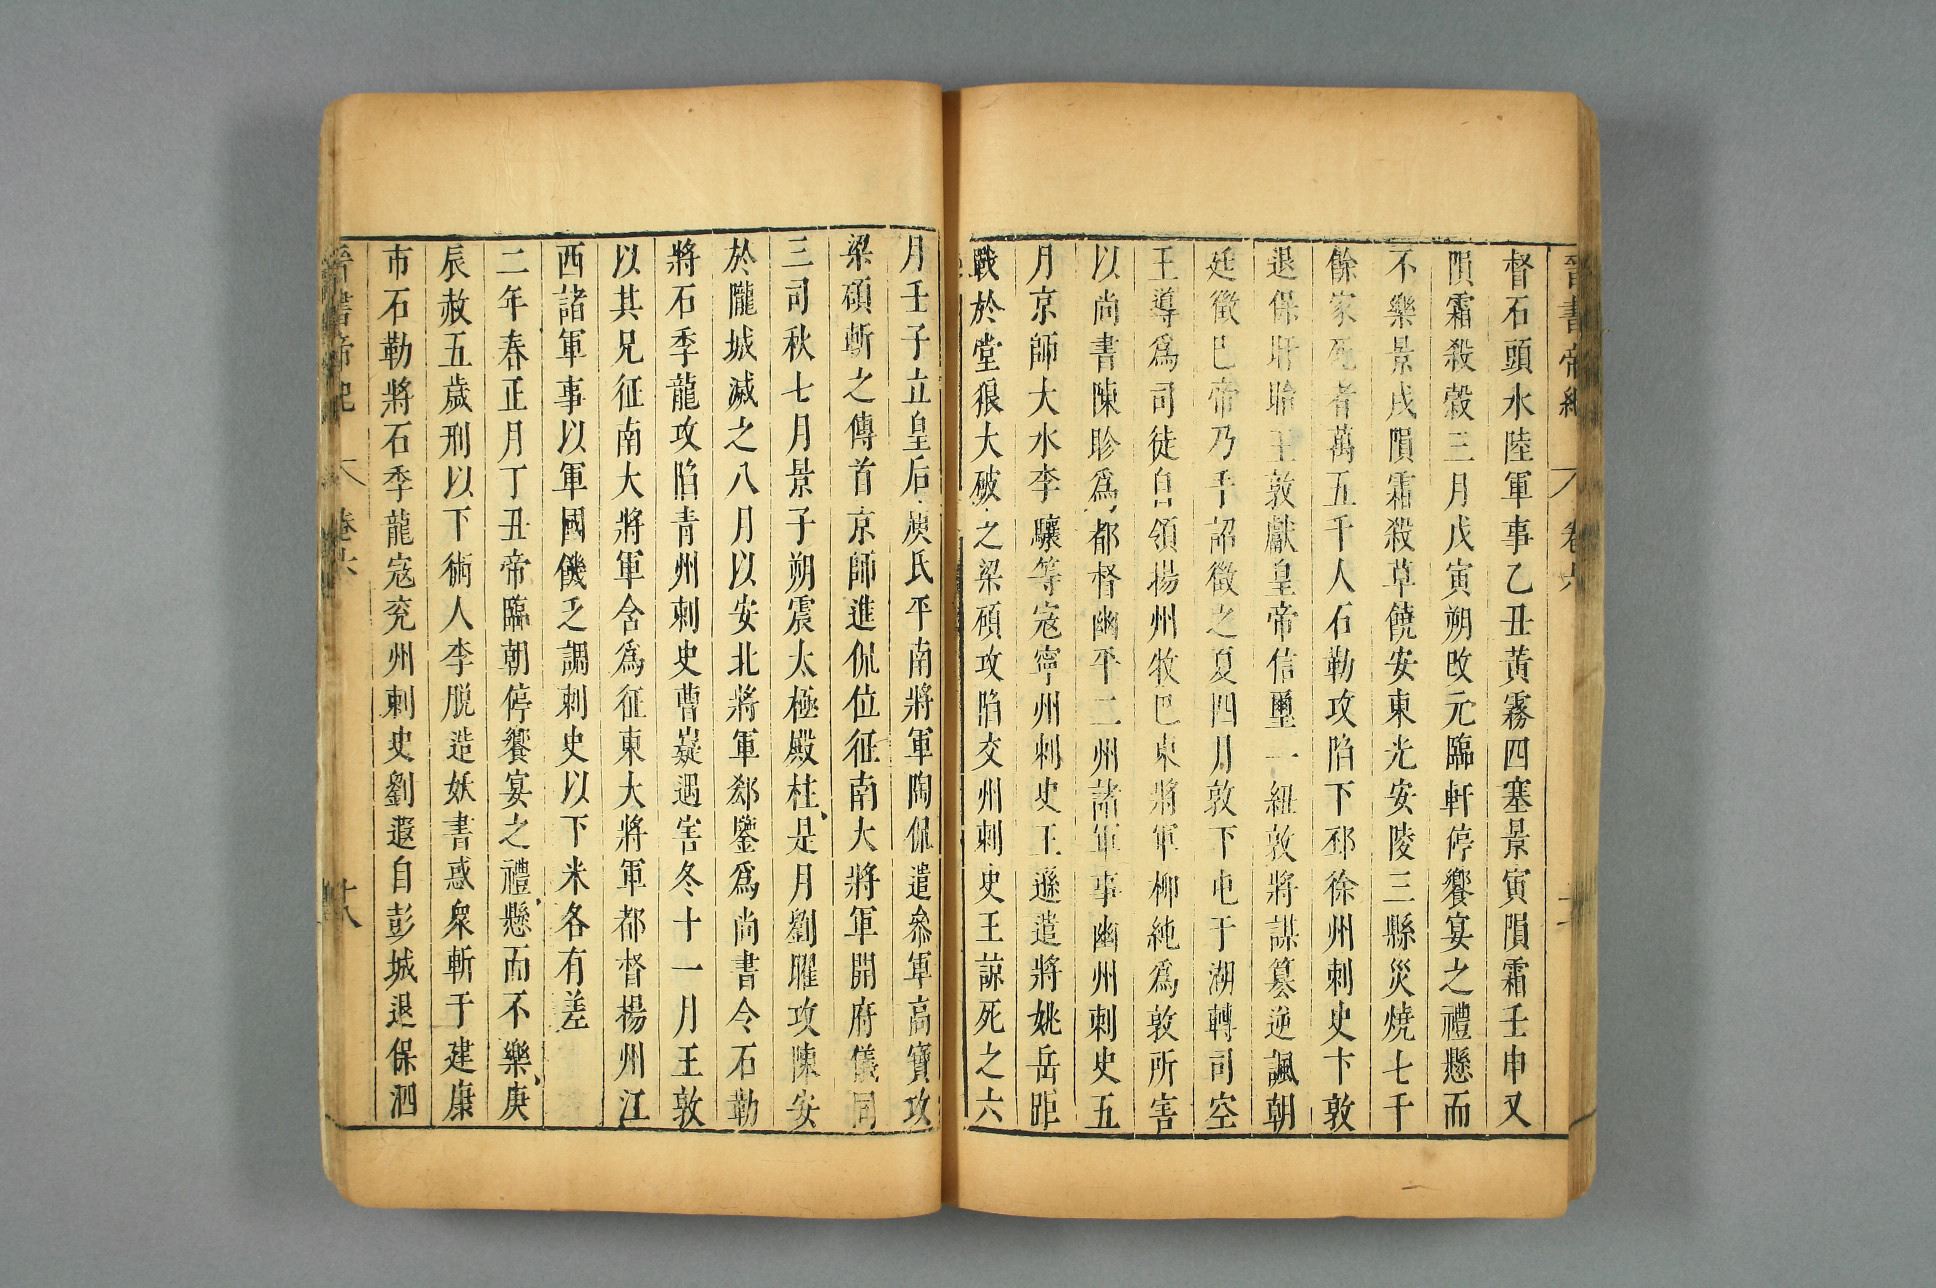 晉書帝紀 卷六
督石頭水陸軍事乙丑黃霧四塞景寅隕霜壬申又
隕霜殺穀三月戊寅朔改元臨軒停饗宴之禮懸而
不樂景戌隕霜殺草饒安東光安陵三縣災燒七千
餘家死者萬五千人石勒攻陷下邳徐州刺史卞敦
退保盱眙王敦獻皇帝信璽一紐敦將謀篡逆諷朝
廷徵巳帝乃手詔徵之夏四月敦下屯于湖轉司空
王導爲司徒自領揚州牧巴東將軍柳純爲敦所害
以尚書陳眕爲都督幽平二州諸軍事幽州刺史五
月京師大水李驤等寇寧州刺史王遜遣將姚岳距
戰於堂狼大破之梁碩攻陷交州刺史王諒死之六
月壬子立皇后庾氏平南將軍陶侃遣參軍高寶攻
梁碩斬之傳首京師進侃位征南大將軍開府儀同
三司秋七月景子朔震太極殿柱是月劉曜攻陳安
於隴城滅之八月以安北將軍郄鑒爲尚書令石勒
將石季龍攻陷青州刺史曹嶷遇害冬十一月王敦
以其兄征南大將軍含爲征東大將軍都督揚州江
西諸軍事以軍國饑乏調刺史以下米各有差
二年春正月丁丑帝臨朝停饗宴之禮懸而不樂庚
辰赦五歲刑以下術人李脫造妖書惑衆斬于建康
市石勒將石季龍寇兖州刺史劉遐自彭城退保泗
晉書帝紀 卷六 十八